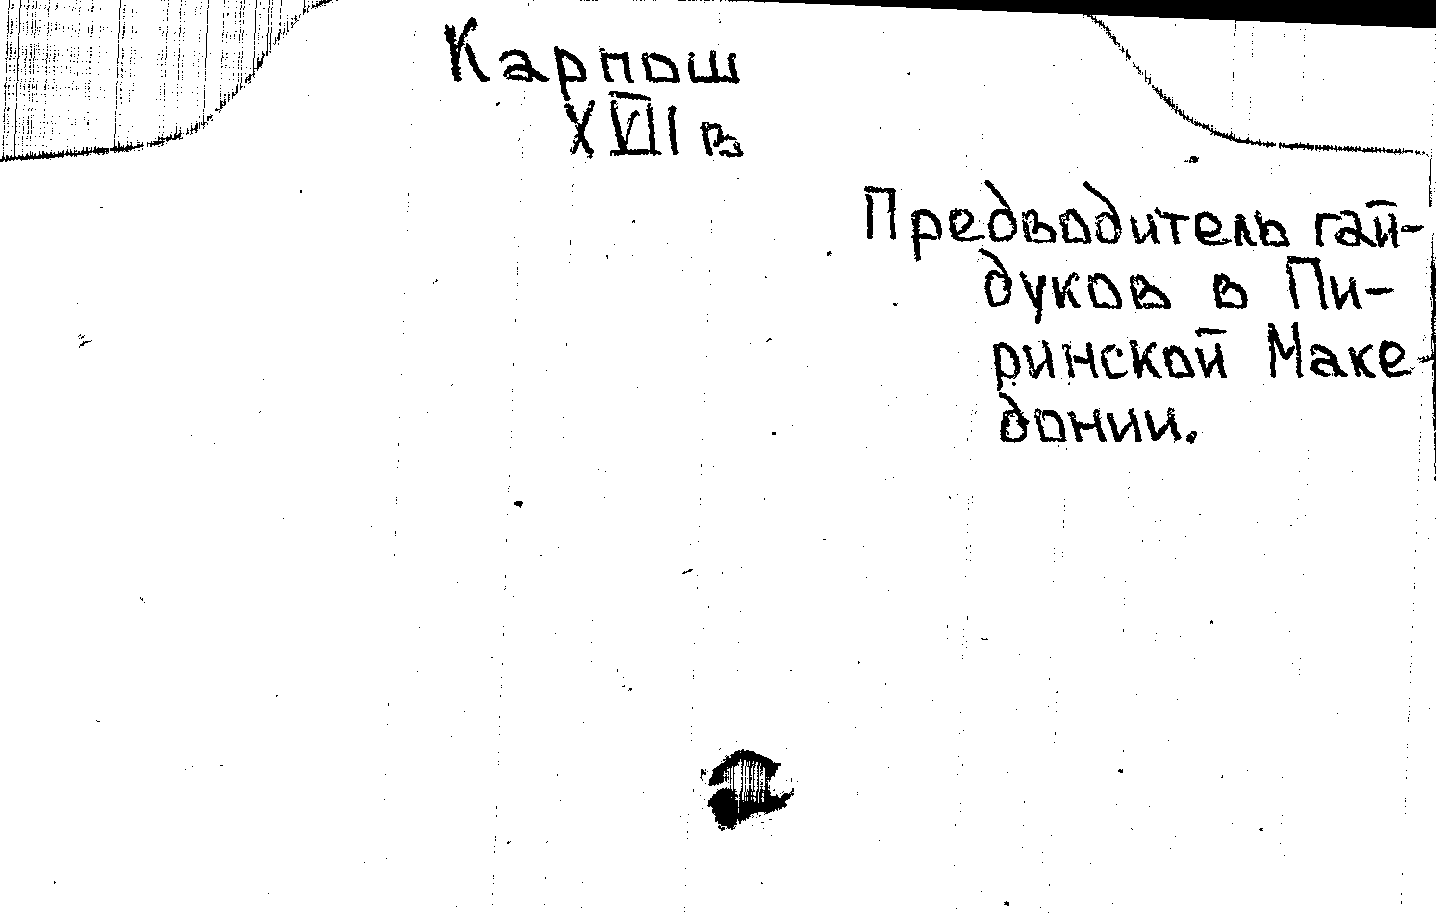 Карпош
XVII в
Предводитель гай-
дуков в Пи-
ринской Маке-
донии.